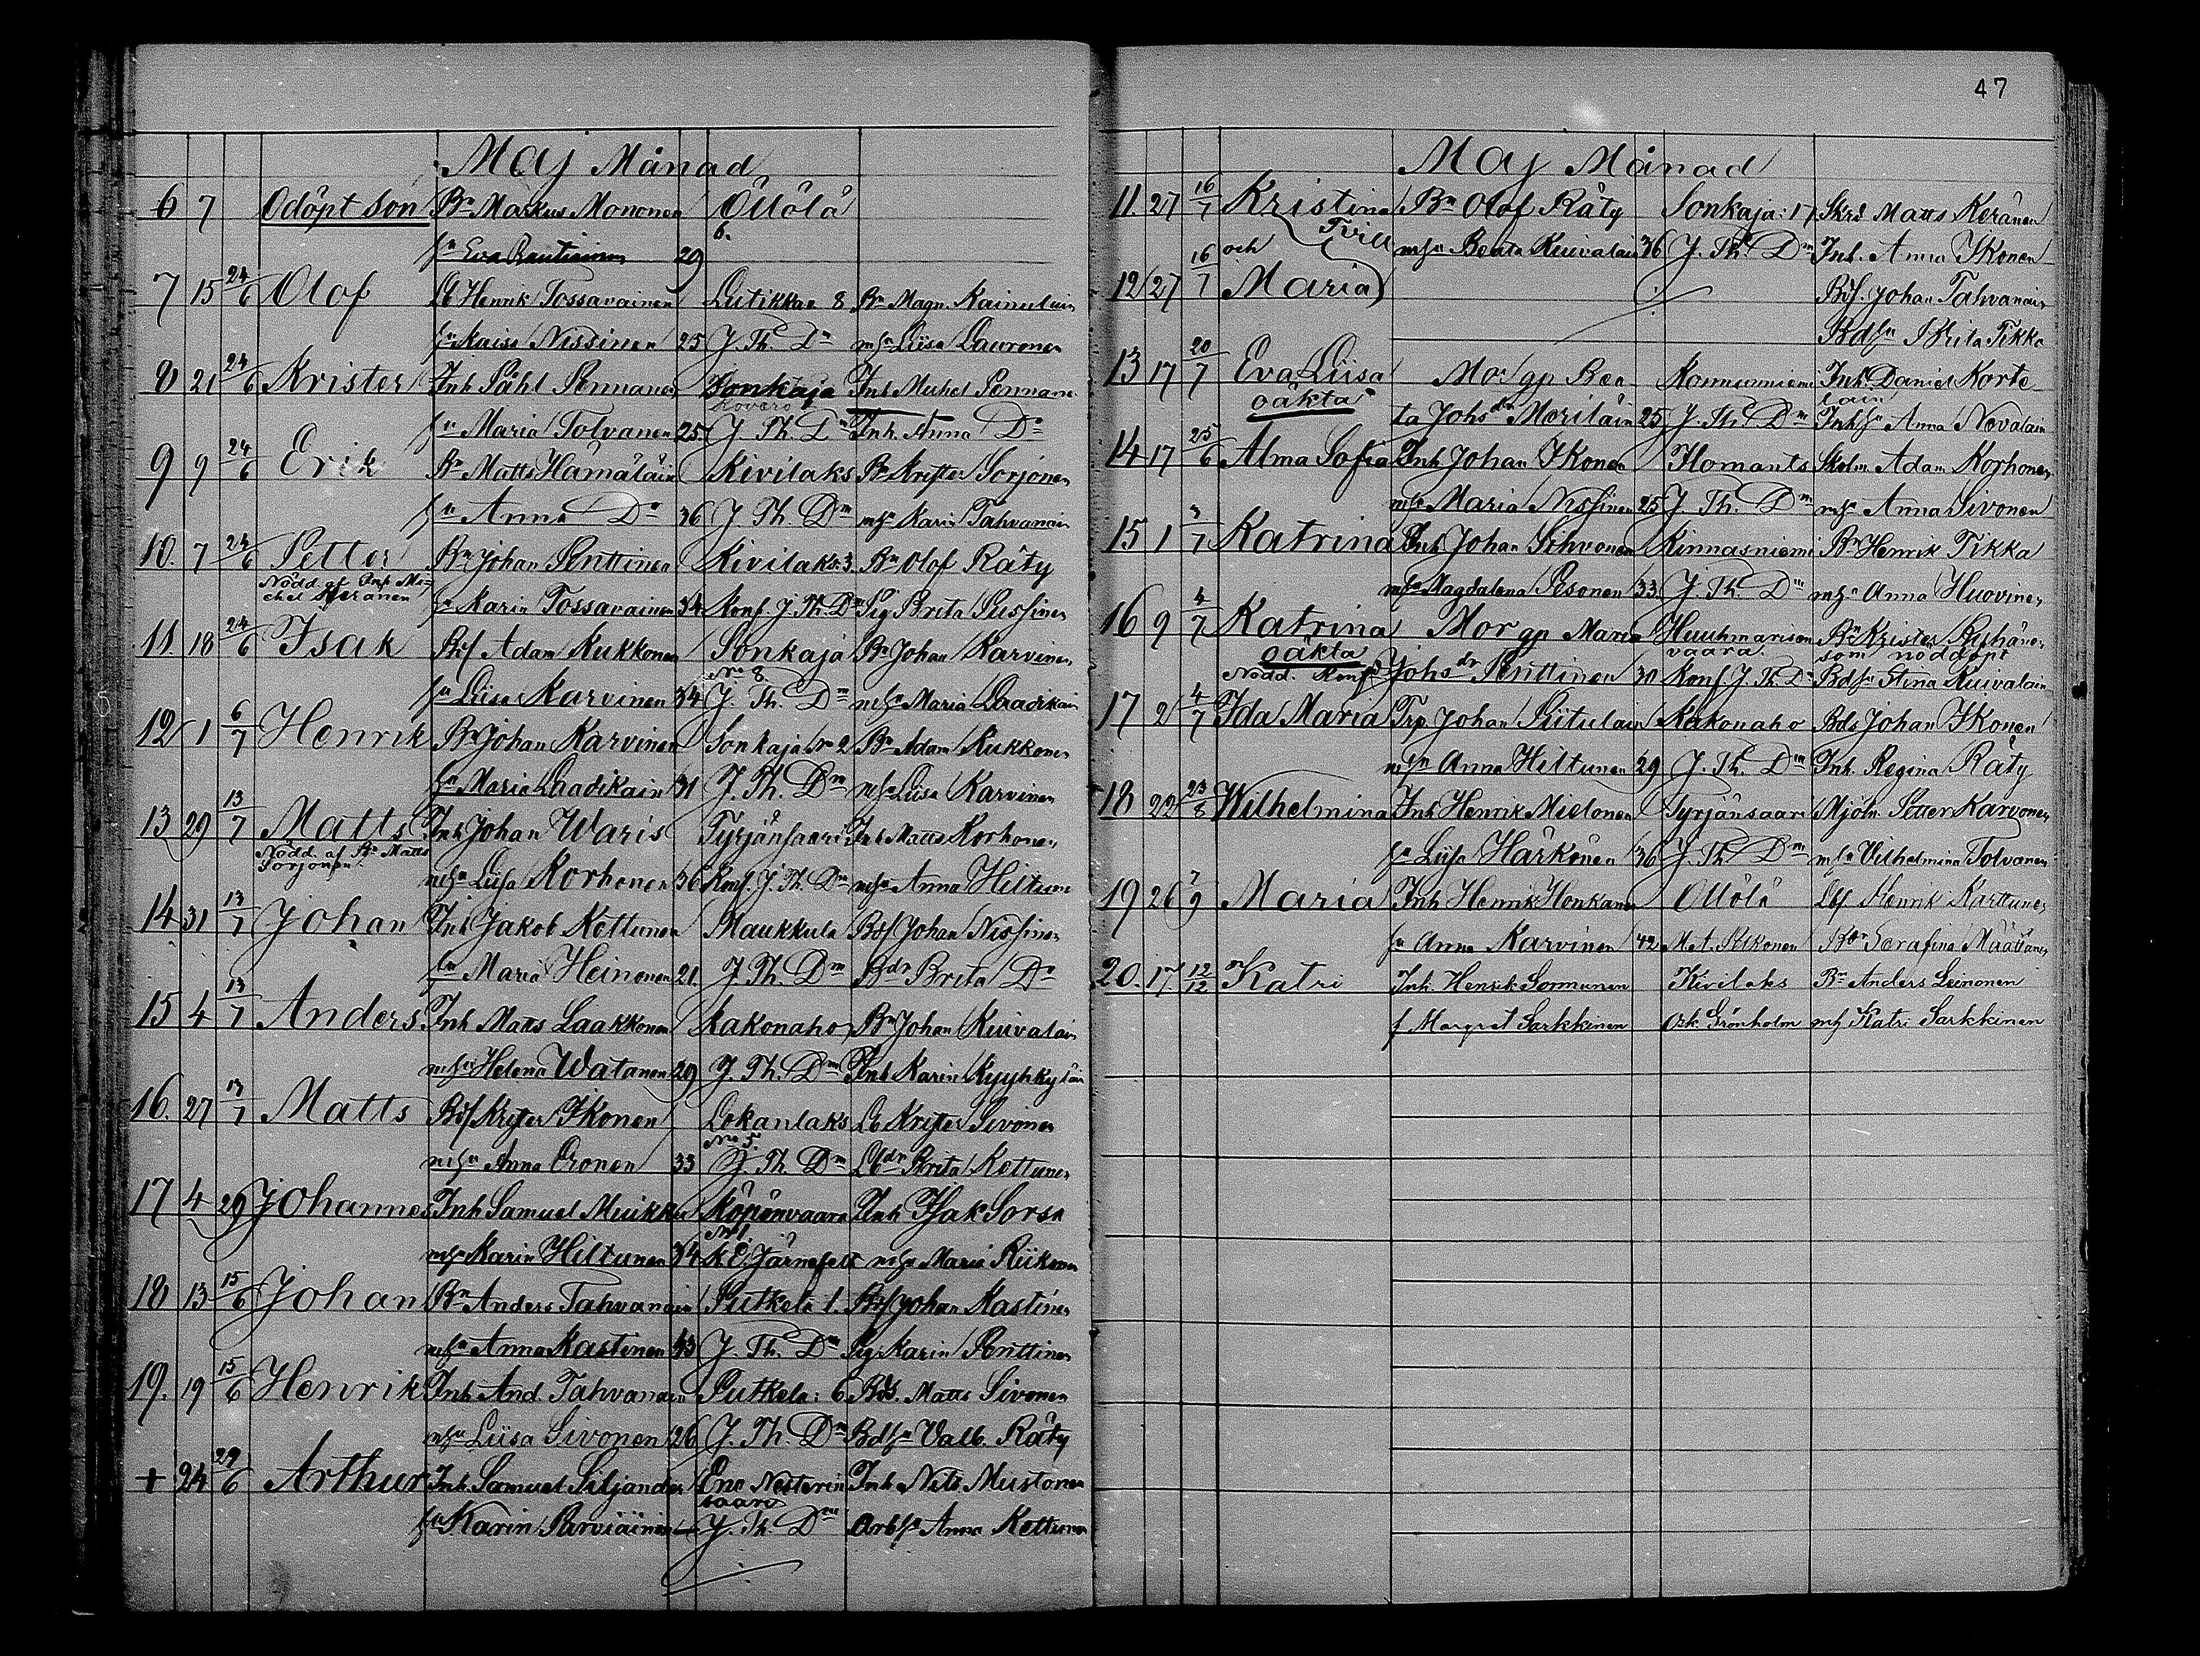 Maj Månad
6 7 Odöpt son Bn Markus Mononen Öllölä
6.
hn Eva Rautiainen 29
7 15 24/6 Olof Lb Henrik Tossavainen Lutikka 8 Bn Magn. Kainulain
hn Kaisa Nissinen 25 J. Th. Dm mhn Liisa Lauronen
8 21 24/6 Krister Inh Påhl Pennanen Sonkaja Inh Michel Pennane
Kovero
hn Maria Tolvanen 25 J. Th. Dm Inh. Anna Do
9 9 24/6 Erik Bn Matts Hämäläin Kivilaks Bn Krister Sorjonen
hn Anna Do 36 J. Th. Dm mhn Karin Tahvanain
10. 7 24/6 Petter Bn Johan Penttinen Kivilaks: 3. Bn Olof Räty
Nödd. af Inh Mi=
chel Keränen hn Karin Tossavainen 34 Konf. J. Th. Dm Pig Brita Pussinen
11. 18 24/6 Isak Bdf Adam Kukkonen Sonkaja Bn Johan Karvinen
No 8
hn Liisa Karvinen 34 J. Th. Dm mhn Maria Laadikain
12 1 6/7 Henrik Bn Johan Karvinen Sonkaja No 2 Bn Adam Kukkonen
hn Maria Laadikain 31 J. Th. Dm mhn Liisa Karvinen
13 29 13/7 Matts Inh Johan Waris Tyrjänsaari Inh Matts Korhonen
Nödd. af Bn Matts
Sorjonen. mhn Liisa Korhonen 36 Konf. J. Th. Dm mhn Anna Hiltun
14 31 13/7 Johan Inh Jakob Kettunen Maukkula Bdf Johan Nissinen
hn Maria Heinonen 21. J. Th. Dm Bdr Brita Do
15 4 13/7 Anders Inh Matts Laakkonen Kakonaho Bn Johan Kuivalain
mhn Helena Watanen 29 J. Th. Dm Inh Karin Kyyhkyläin
16. 27 13/7 Matts Bdf Krister Ikonen Lokanlaks Lb Krister Sivonen
No 5.
mhn Anna Oronen 33 J. Th. Dm Lbdr Brita Kettunen
17 4 29 Johannes Inh Samuel Muikku Köpönvaara Inh Isak Sorsa
No 1
mhn Karin Hiltunen 34 K. E. Järnefelt mhn Maria Riikonen
18 13 15/6 Johan Bn Anders Tahvanain Putkela 1. Bdf Johan Kastinen
mhn Anna Kastinen 43 J. Th. Dm Pig Karin Penttinen
19. 19 15/6 Henrik Inh And. Tahvanain Putkela: 6 Bds. Matts Sivonen
mhn Liisa Sivonen 26 J. Th. Dm Bdhn Valb. Räty
+ 24 29/6 Arthur Inh Samuel Siljander Eno Nesterin Inh Nils Mustonen
saari
hn Karin Parviäinen J. Th. Dm Arbhn Anna Kettunen
47
Maj Månad
11. 27 16/7 Kristina Bn Olof Räty Sonkaja: 17 Skrd Matts Keränen
och Tvill mhn Beata Kuivalain 36 J. Th. Dm Inh. Anna Ikonen
12 27 16/7 Maria Bdf. Johan Tahvanain
Bdhn Brita Tikka
13 17 20/7 Eva Liisa Mor gp Bea Konnunniemi Inh. Daniel Korte
oäkta lain
ta Johsdr Moriläin 25 J. Th. Dm Inhhn Anna Nevalain
14 17 25/6 Alma Sofia Inh Johan Ikonen Ilomants Skolm Adam Korhonen
mhn Maria Nissinen 25 J. Th. Dm mhn Anna Sivonen
15 1 3/7 Katrina Inh Johan Sihvonen Kinnasniemi Bn Henrik Tikka
mhn Magdalena Pesonen 33 J. Th. Dm mhn Anna Huovinen
16 9 4/7 Katrina Mor gp Maria Huuhmarisen Bn Krister
oäkta vaara. som nöddöpt
Nödd. Konf Johsdr Penttinen 30 Konf J. Th. Dm Bdhn Stina Kuivalain
17 2 4/7 Ida Maria Trp Johan Piitulain Kakonaho Bds Johan Ikonen
mhn Anna Hiltunen 29 J. Th. Dm Inh. Regina Räty
18 22 23/8 Wilhelmina Inh Henrik Mielonen Tyrjänsaari Mjöln Petter Karvonen
hn Liisa Härkönen 36 J. Th. Dm mhn Vilhelmina Tolvanen
19 26 7/9 Maria Inh Henrik Honkanen Öllölä Lbf Henrik Karttunen
hn Anna Karvinen 42 M. A. Pelkonen Bdr Serafina Määttänen
20. 17. 12/12 Katri Inh. Henrik Sormunen Kivilaks Bn Anders Leinonen
h Margret Sarkkinen Ork. Grönholm mh Katri Sarkkinen